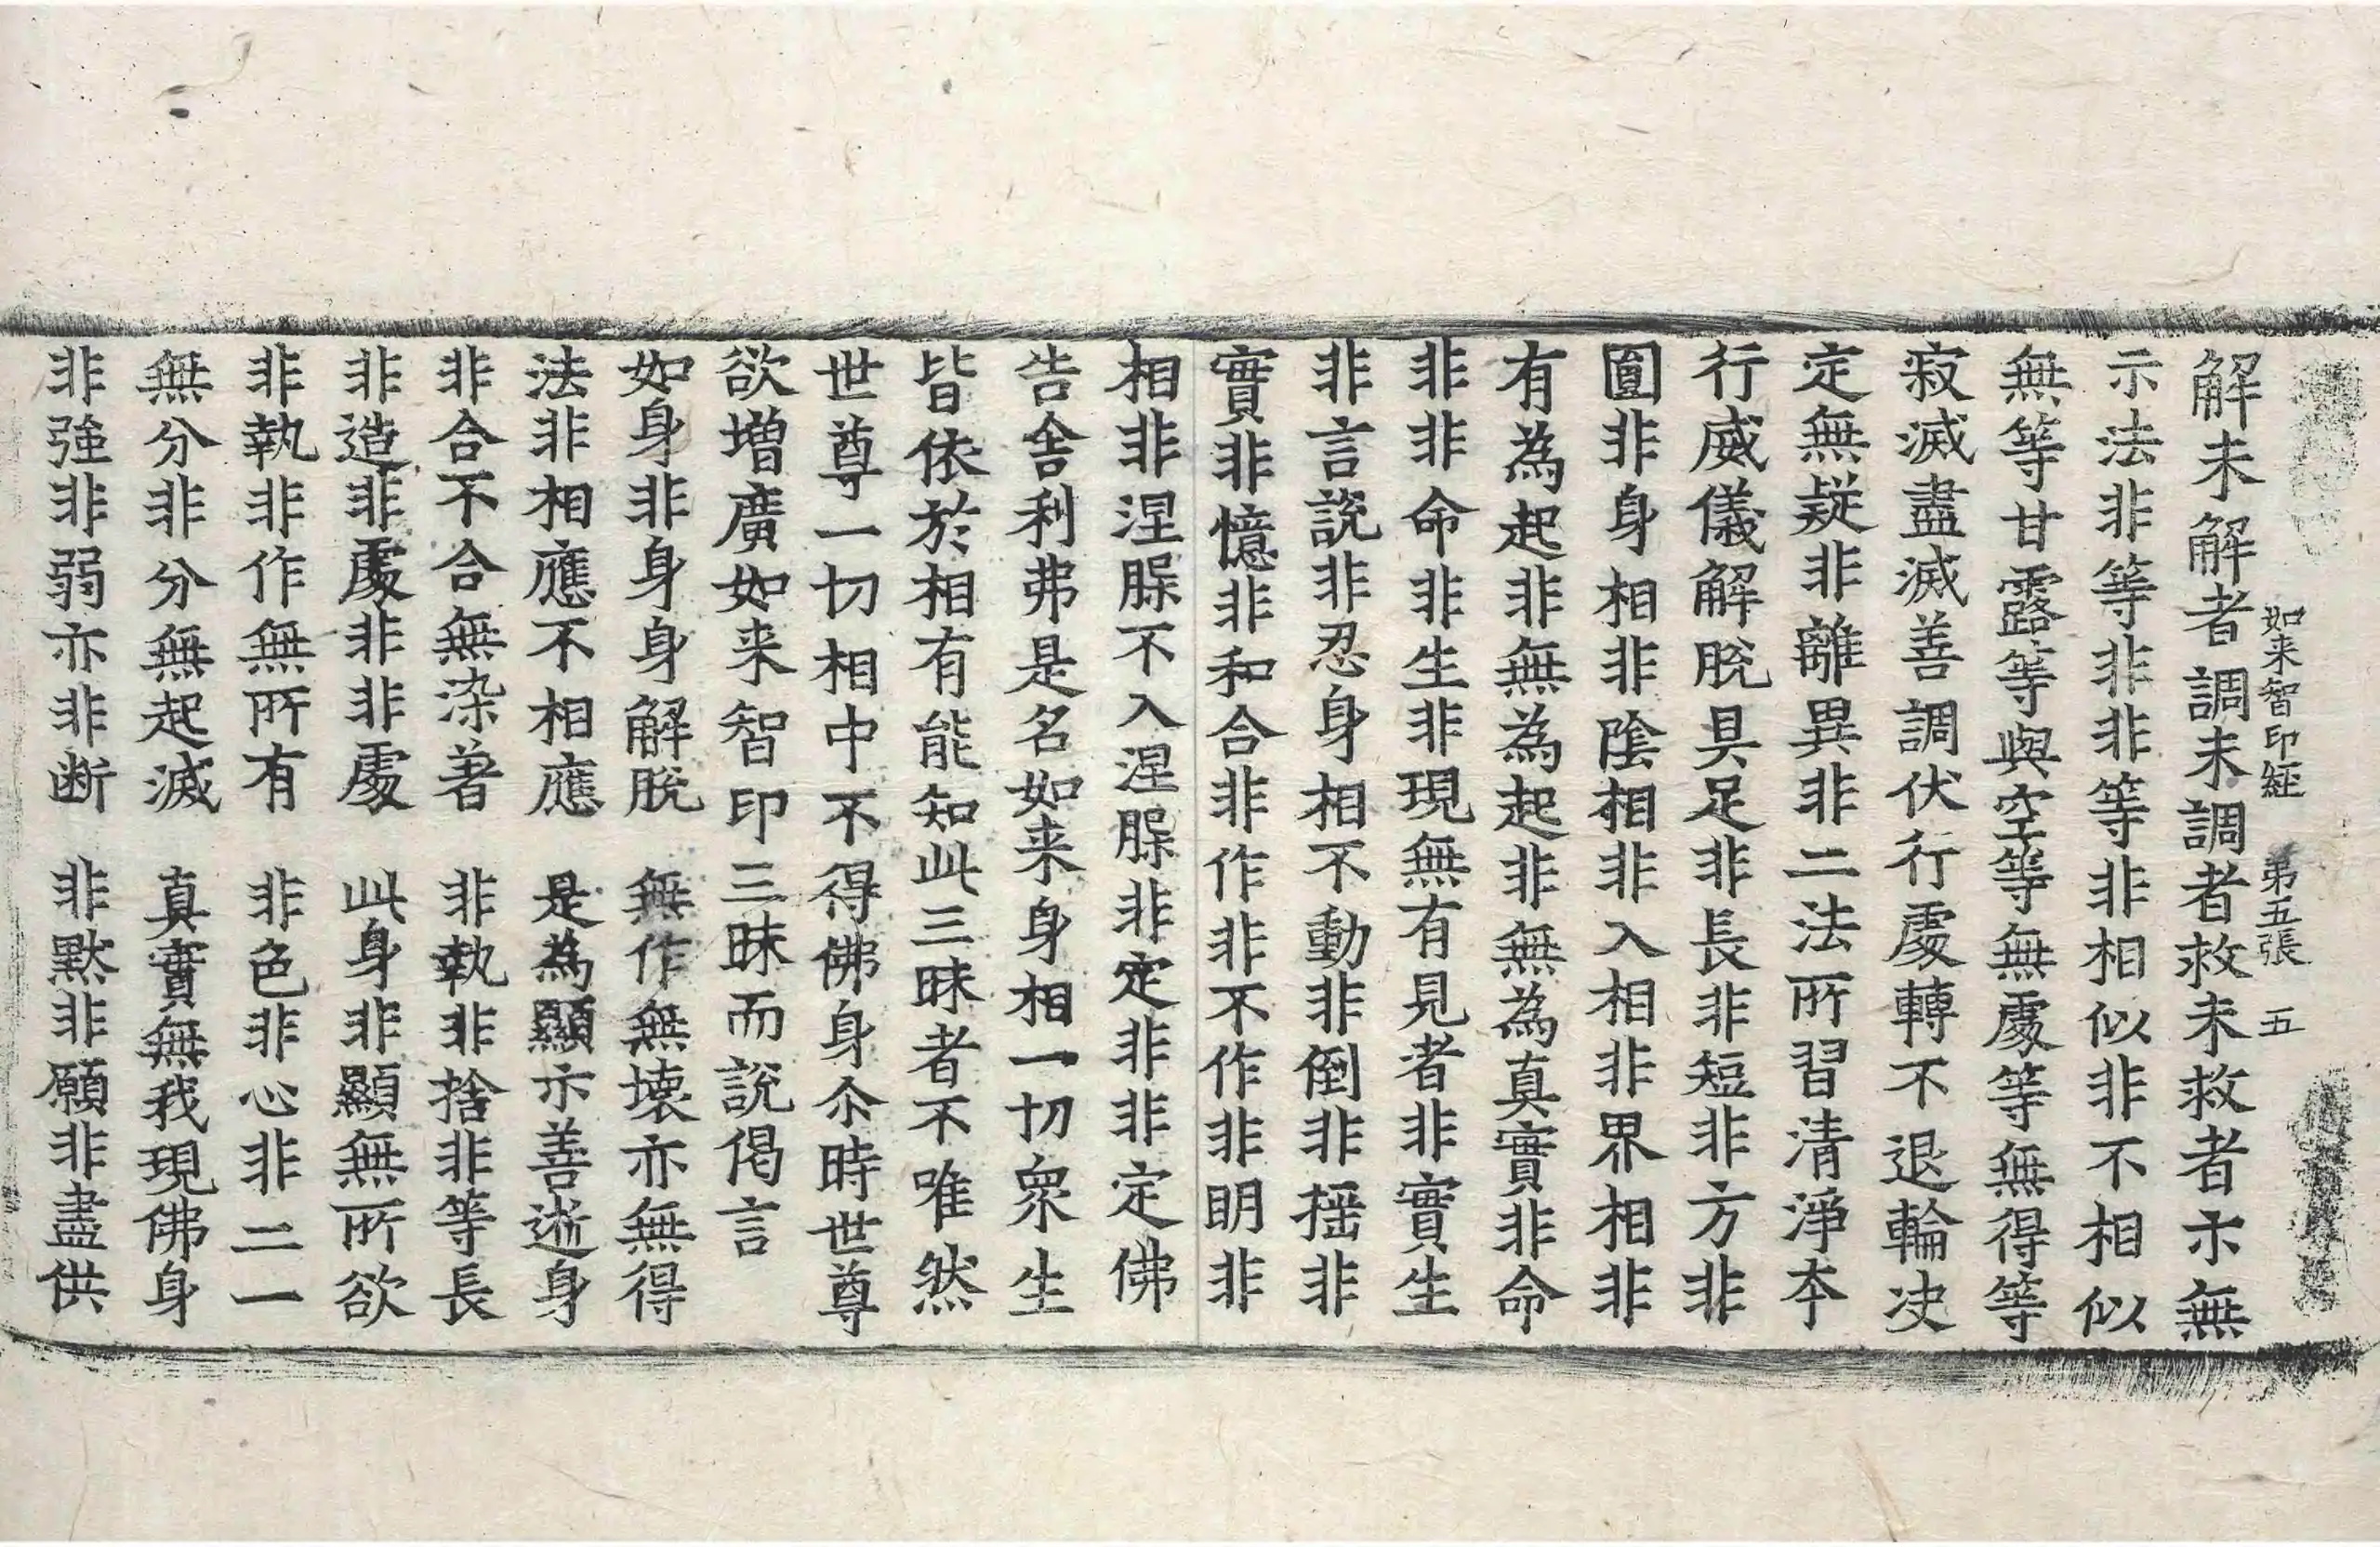 如来智印經 第五張 五
解未解者調未調者救未救者示無
示法非等非非等非相似非不相似
無等甘露等與空等無處等無得等
寂滅盡滅善調伏行處轉不退輪决
定無疑非離異非二法所習清淨夲
行威儀解脫具足非長非短非方非
圓非身相非陰相非入相非界相非
有為起非無為起非無為真實非命
非非命非生非現無有見者非實生
非言說非忍身相不動非倒非揺非
實非憶非和合非作非不作非明非
相非涅槃不入涅槃非定非非定佛
告舍利弗是名如来身相一切衆生
皆依於相有能知此三昧者不唯然
世尊一切相中不得佛身尒時世尊
欲增廣如来智印三昧而說偈言
如身非身身解脫 無作無壞亦無得
法非相應不相應 是為顯示善逝身
非合不合無染著 非執非捨非等長
非造非處非非處 此身非顯無所欲
非執非作無所有 非色非心非二一
無分非分無起滅 真實無我現佛身
非強非弱亦非断 非黙非願非盡供